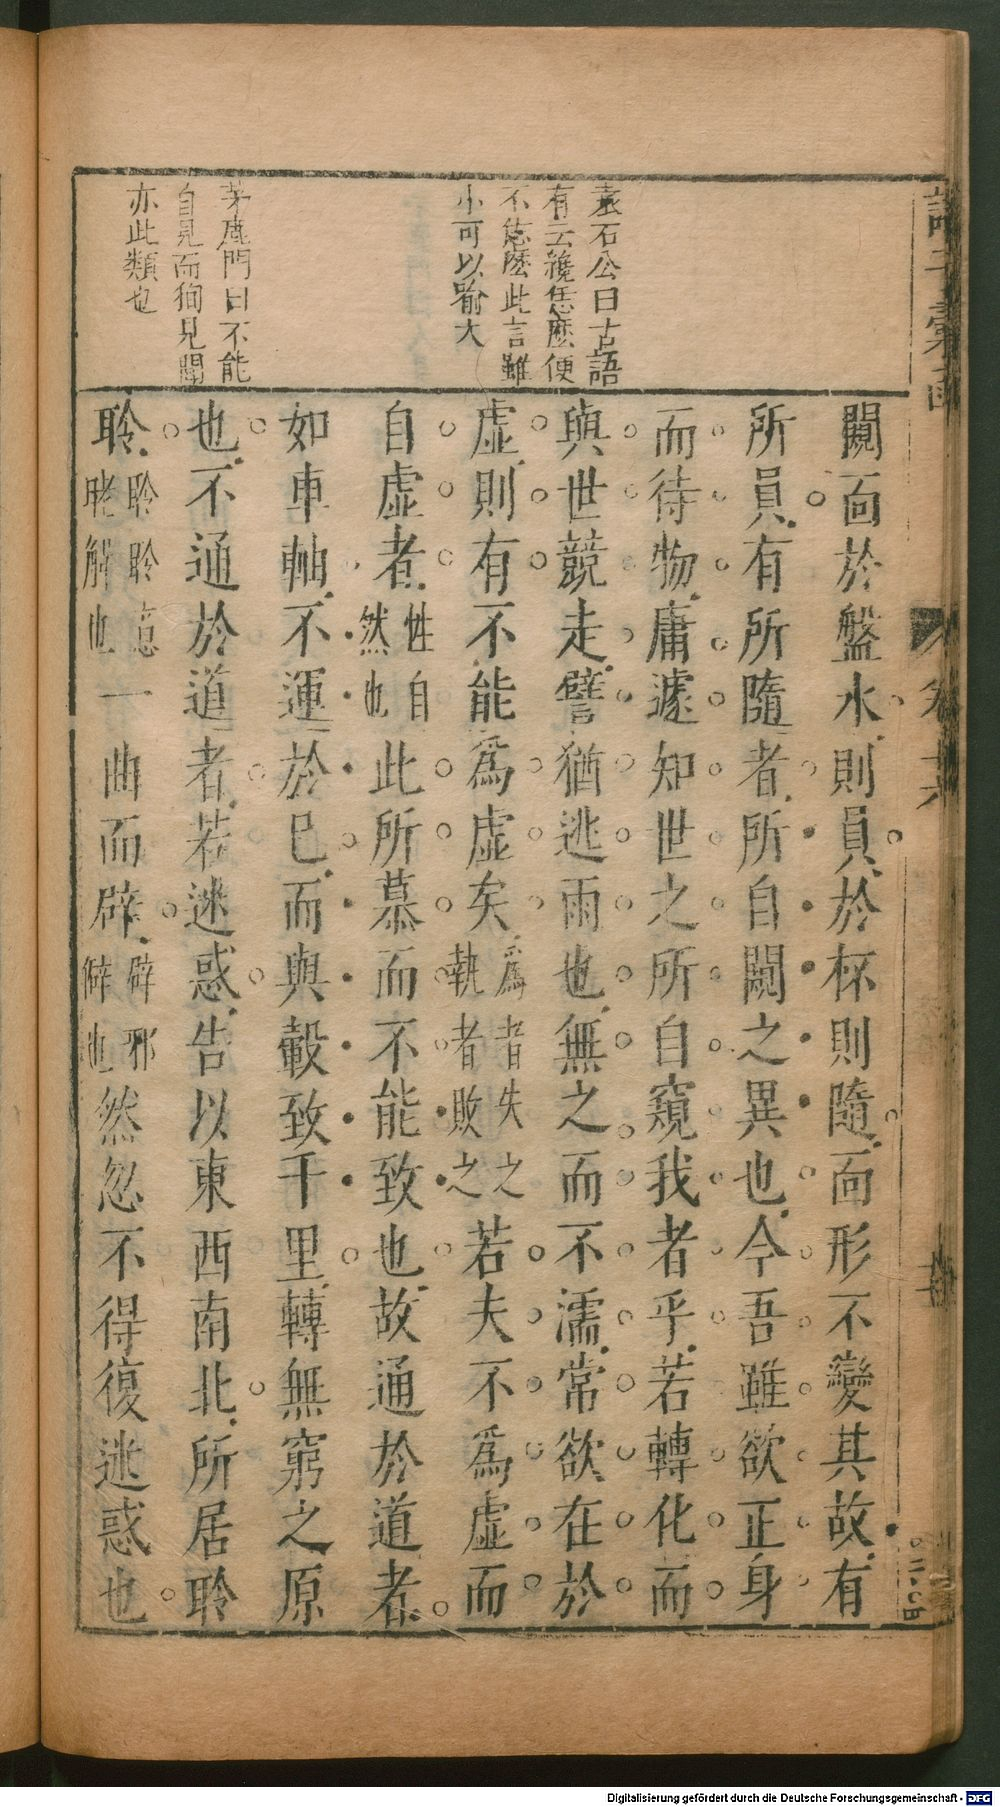 袁石公曰古語
有云纔恁麽便
不恁麽此言雖
小可以喻大
茅鹿門曰不能
自見而狥見聞
亦此類也
闚靣於盤水則員於杯則隨靣形不變其故有
所員有所隨者所自闚之異也今吾雖欲正身
而待物庸遽知世之所自窺我者乎若轉化而
與世競走譬猶逃雨也無之而不濡常欲在於
虛則有不能爲虛矣爲者失之執者敗之若夫不爲虛而
自虛者性自然也此所慕而不能致也故通於道者
如車軸不運於巳而與轂致千里轉無窮之原
也不通於道者若迷惑告以東西南北所居聆
聆聆聆意曉解也一曲而辟辟邪僻也然忽不得復迷惑也
Digitalisierung gefördert durch die Deutsche Forschungsgemeinschaft - DFG